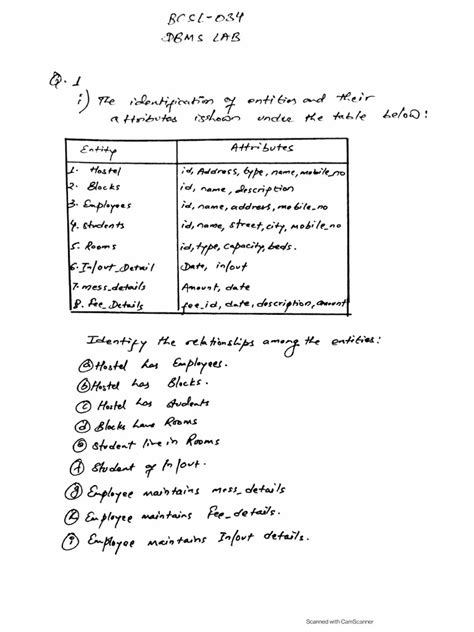 BCSL-034
DBMS LAB
Q.1
i) The identification of entities and their
attributes is shown under the table below:
Entity Attributes
1. Hostel id, Address, type, name, mobile_no
2. Blocks id, name, Description
3. Employees id, name, address, mobile_no
4. Students id, name, street, city, mobile_no
5. Rooms id, type, capacity, beds.
6. In/out_Detail Date, in/out
7. mess_details Amount, date
8. Fee_Details fee_id, date, description, amount
Identify the relationships among the entities:
(a) Hostel has Employees.
(b) Hostel has Blocks.
(c) Hostel has students
(d) Blocks have Rooms
(e) Student live in Rooms
(f) Student of In/out.
(g) Employee maintains mess_details
(h) Employee maintains Fee_details.
(i) Employee maintains In/out details.
Scanned with CamScanner